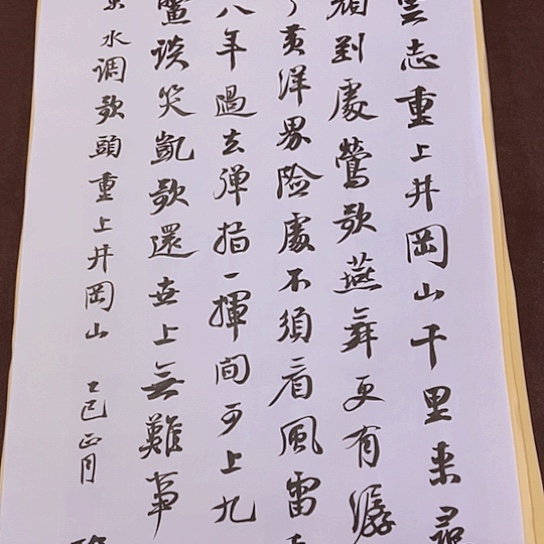 雲志重上井岡山千里来尋
頭到處鶯歌燕舞更有潺
黄洋界险處不須看風雷
八年過去弹指一揮間可上九
鱉谈笑凱歌還世上無難事
水调歌頭重上井岡山 乙巳正月